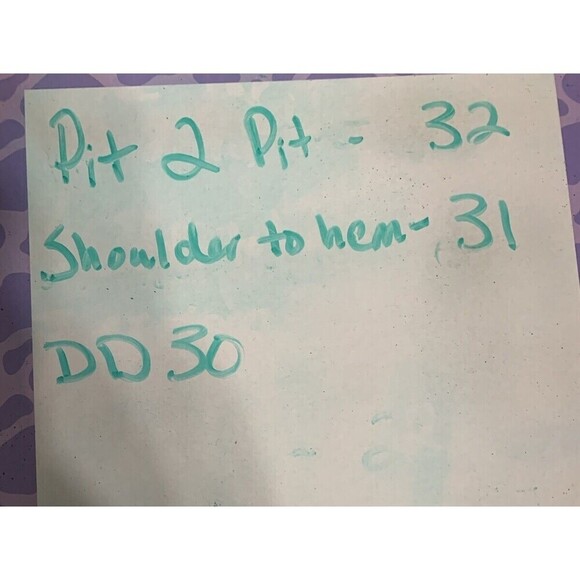 Pit 2 Pit - 32
Shoulder to hem- 31
DD 30